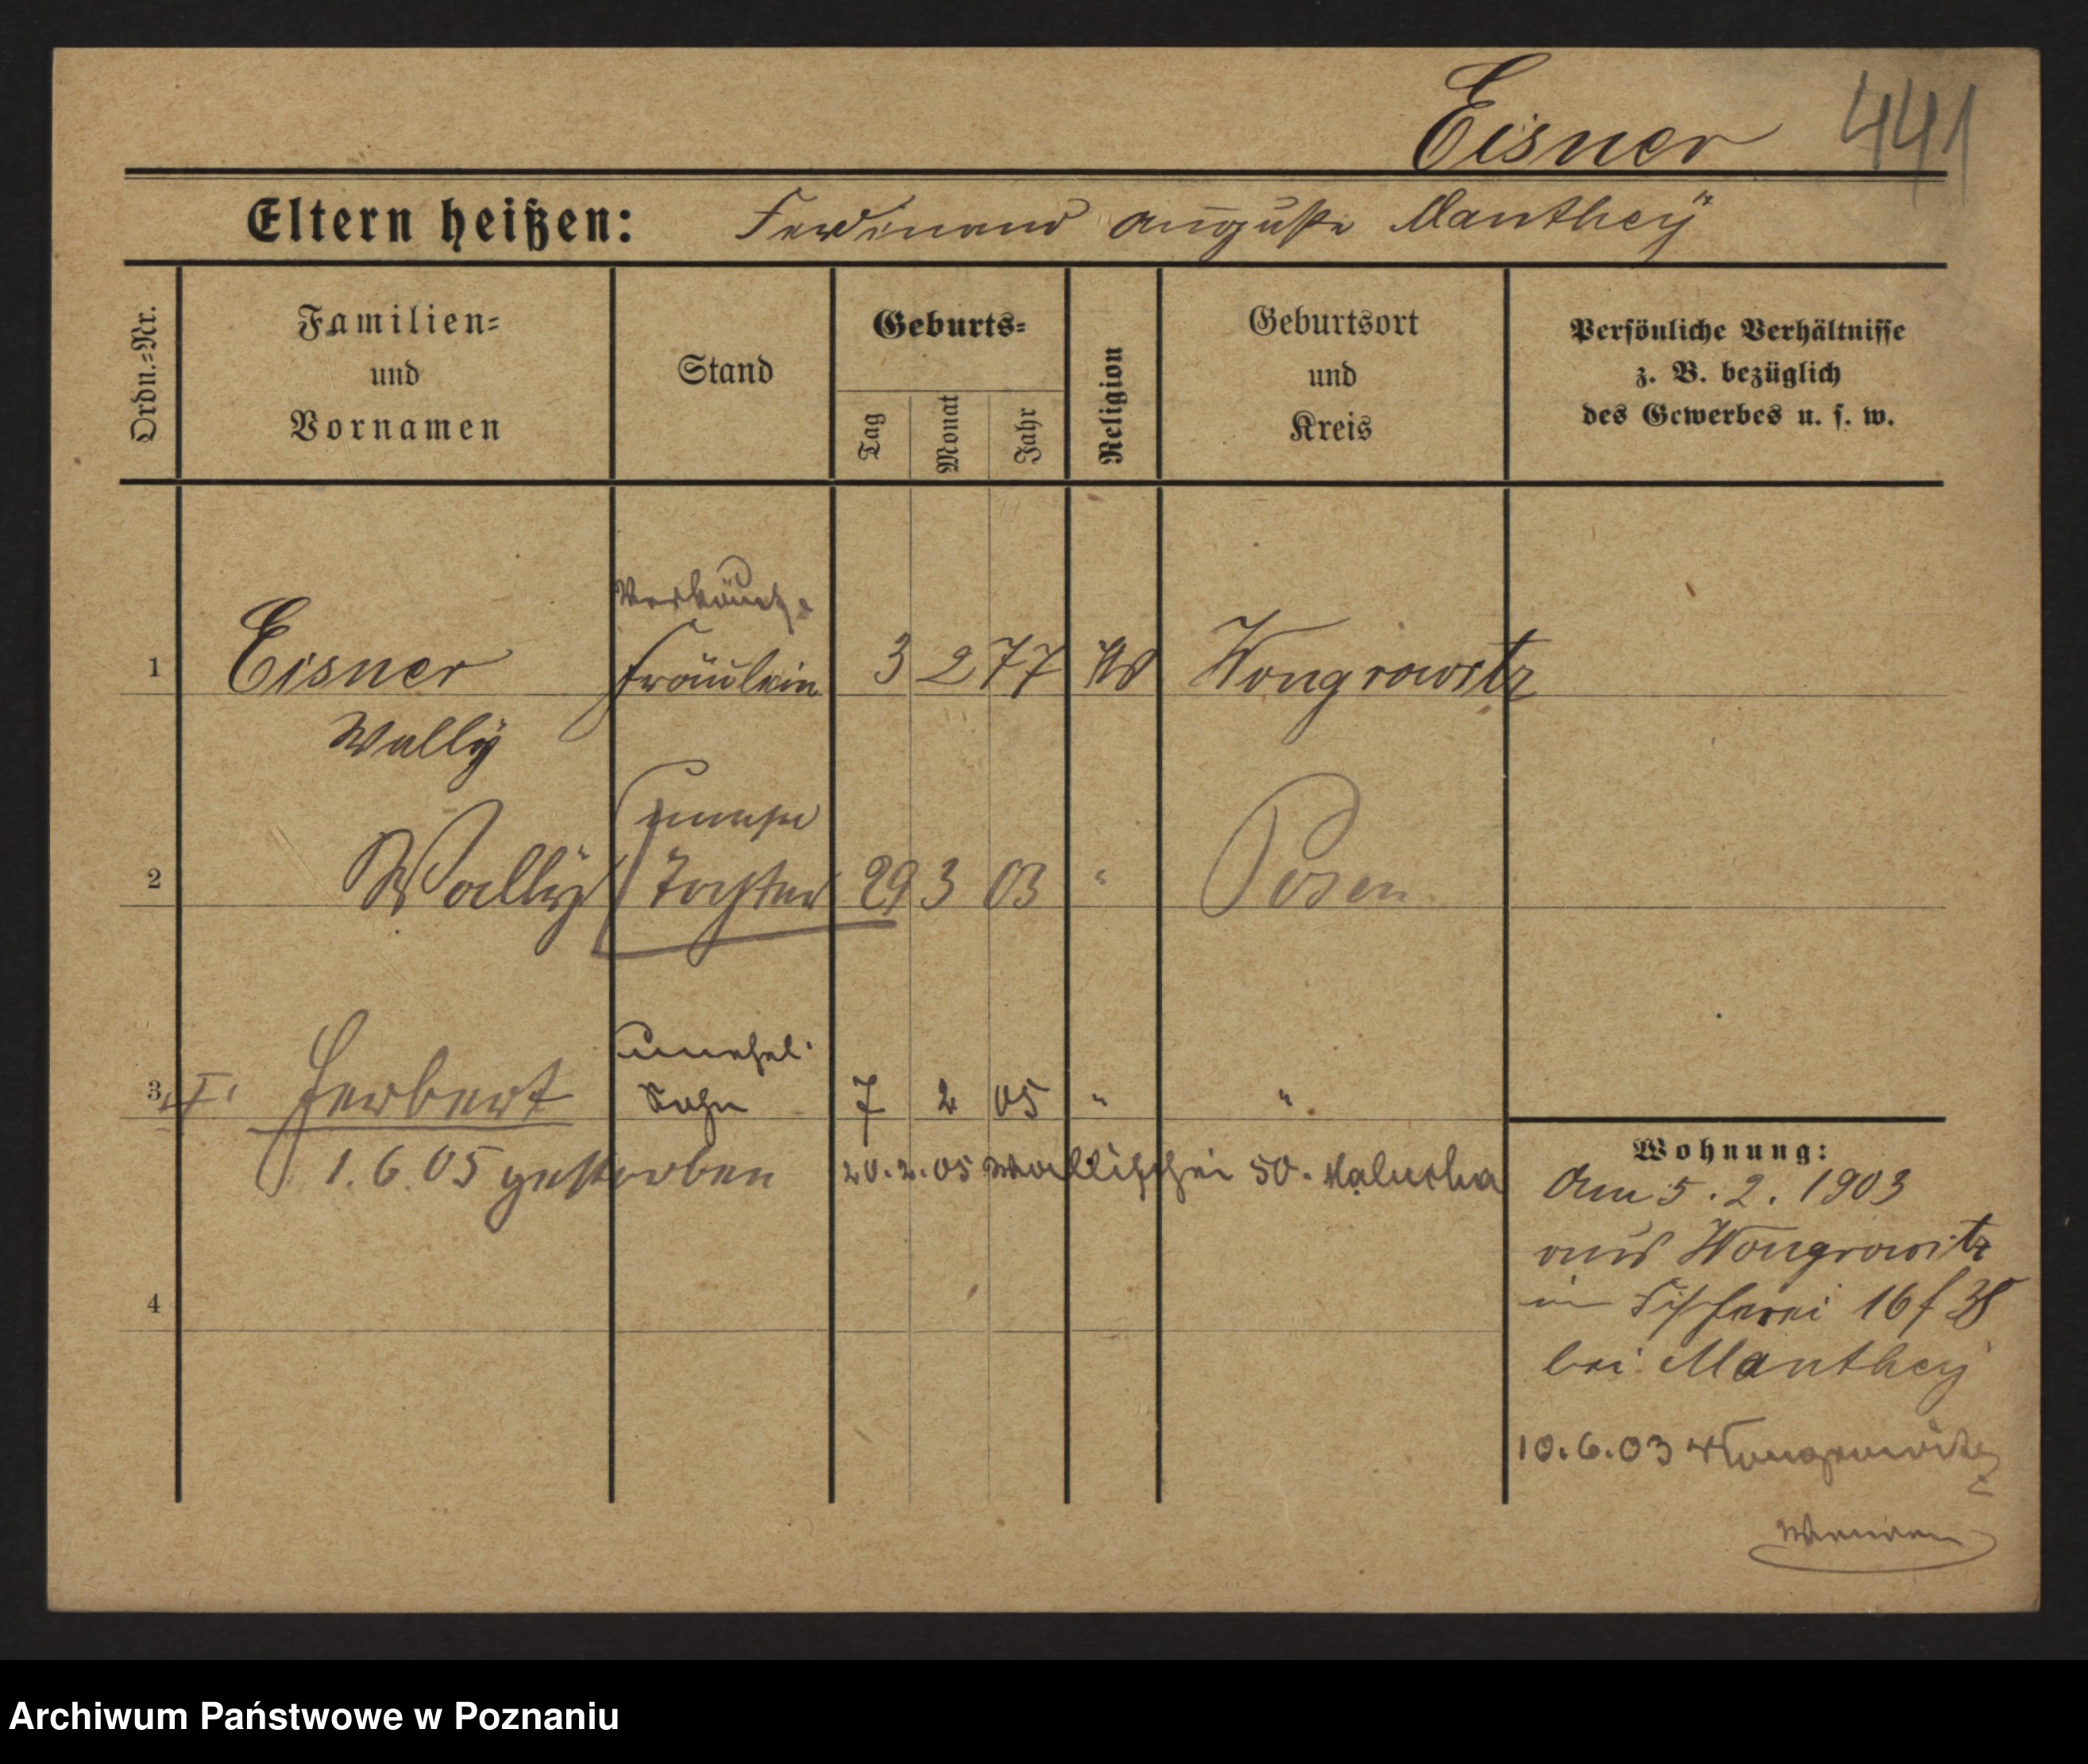 Eisner 441
Eltern heißen: Ferdinand Auguste Manthey
Ordn.=Nr.
Familien=
und
Vornamen
Stand
Geburts=
Tag
Monat
Jahr
Religion
Geburtsort
und
Kreis
Persönliche Verhältnisse
z. B. bezüglich
des Gewerbes u. s. w.
1 Eisner Fräulein 3 2 77 Wongrowitz
Wally
unehel
2 Wally Tochter 29 3 03 " Posen
unehel.
3 Herbert Sohn 7 2 05 " "
1.6.05 gestorben 20.2.05 Wallischei 50.
4
Wohnung:
Am 5. 2. 1903
aus Wongrowitz
in Fischerei 16
bei Manthey
10.6.03 Wongrowitz
Archiwum Państwowe w Poznaniu